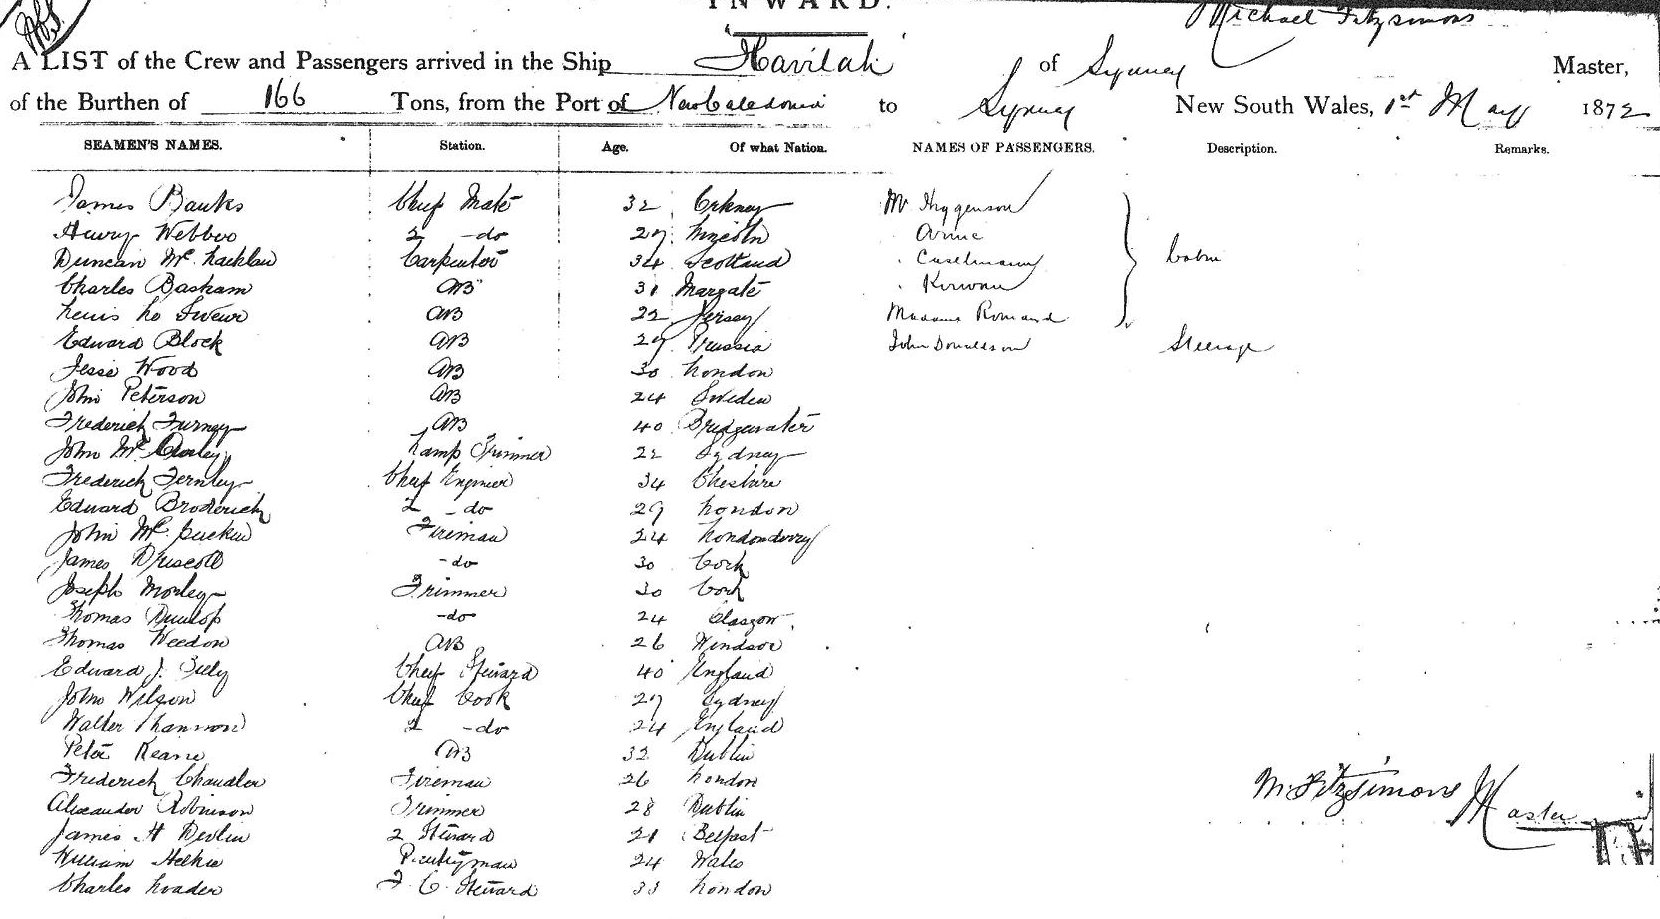 INWARD.
Michael Fitzsimons
A LIST of the Crew and Passengers arrived in the Ship Havilah of Sydney Master,
of the Burthen of 166 Tons, from the Port of New Caledonia to Sydney New South Wales, 1st May 1872
SEAMEN'S NAMES. Station. Age. Of what Nation. NAMES OF PASSENGERS. Description. Remarks.
James Banks Chief Mate 32 Orkney Mr Higgenson
Henry 2 -do 27 Lincoln
Duncan Mc Lachlan Carpenter 34 Scotland Caselmann Cabin
Charles Basham AB 31 Margate Kirwan
Louis Le Sweur AB 22 Jersey Madame Romand
Edward Block AB 29 Prussia John Donaldson Steerage
Jesse Wood AB 30 London
John Peterson AB 24 Sweden
Frederick Furney AB 40 Bridgewater
John Mc Lamp Trimmer 22 Sydney
Frederick Fernley Chief Engineer 34 Cheshire
Edward Broderick 2 -do 29 London
John Mc Fireman 24 Londonderry
James Driscoll -do 30 Cork
Joseph Morley Trimmer 30 Cork
Thomas Dunlop -do 24 Glasgow
Thomas Weedon AB 26 Windsor
Edward J. Chief Steward 40 England
John Wilson Chief Cook 27 Sydney
Walter 2 -do 24 England
Peter Keane AB 32 Dublin
Frederick Chandler Fireman 26 London
Alexander Robinson Trimmer 28 Dublin
M. Fitzsimons Master
James H Devlin 2 Steward 21 Belfast
William Pantryman 24 Wales
Charles Loader F. C. Steward 33 London